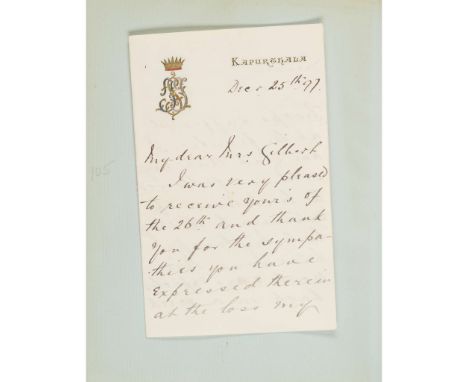 KAPURTHALA
Dec 25th 77.
My dear Mrs. Gilbert
I was very pleased
to receive your's of
the 26th and thank
you for the sympa-
thies you have
expressed therein
at the loss my
105